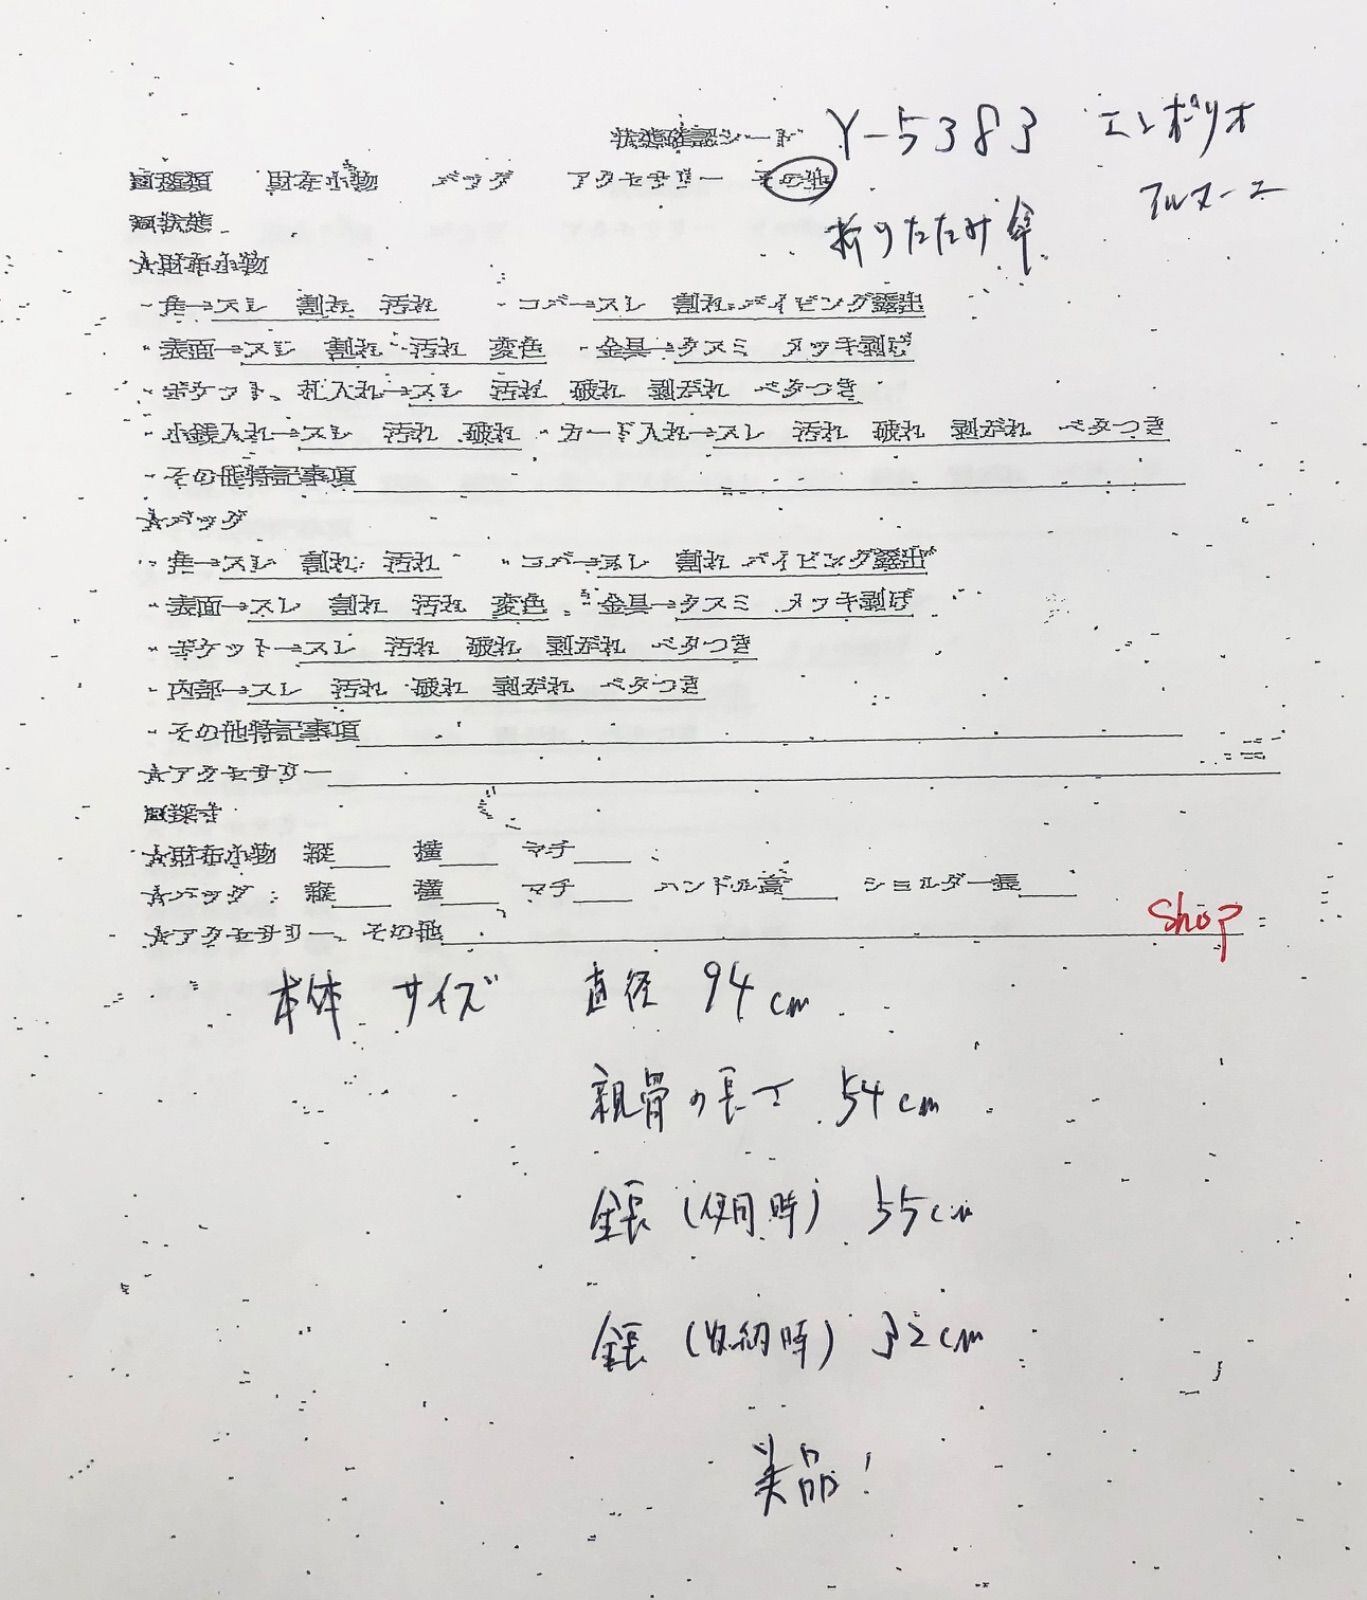 状態確認シート Y-5383 エンポリオ
□種類 財布小物 バッグ アクセサリー その他
アルマーニ
□状態 折りたたみ傘
☆財布小物
・角→スレ 割れ 汚れ ・コバ→スレ 割れ パイピング露出
・表面→スレ 割れ 汚れ 変色 ・金具→クスミ メッキ剥げ
・ポケット、札入れ→スレ 汚れ 破れ 剥がれ ベタつき
・小銭入れ→スレ 汚れ 破れ ・カード入れ→スレ 汚れ 破れ 剥がれ ベタつき
・その他特記事項
☆バッグ
・角→スレ 割れ 汚れ ・コバ→スレ 割れ パイピング露出
・表面→スレ 割れ 汚れ 変色 ・金具→クスミ メッキ剥げ
・ポケット→スレ 汚れ 破れ 剥がれ ベタつき
・内部→スレ 汚れ 破れ 剥がれ ベタつき
・その他特記事項
☆アクセサリー
□採寸
☆財布小物 縦 横 マチ
☆バッグ 縦 横 マチ ハンドル高 ショルダー長
☆アクセサリー、その他 Shop
本体サイズ 直径 94cm
親骨の長さ 54cm
全長(使用時) 55cm
全長(収納時) 32cm
美品!